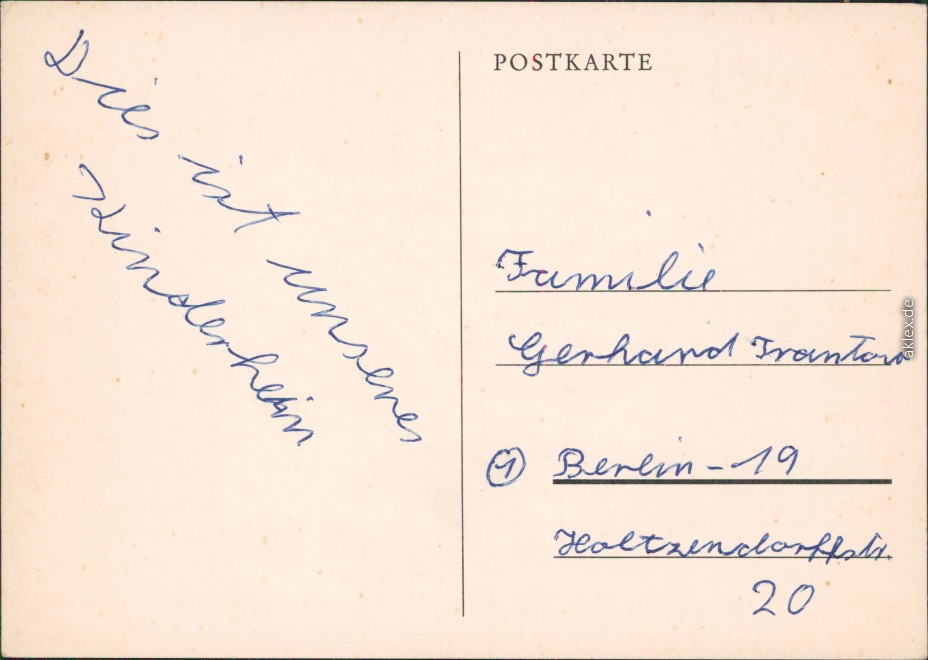 Dies ist unseres
Kinderheim
POSTKARTE
Familie
Gerhard
① Berlin-19
Holtzendorffstr.
20
aklex.de